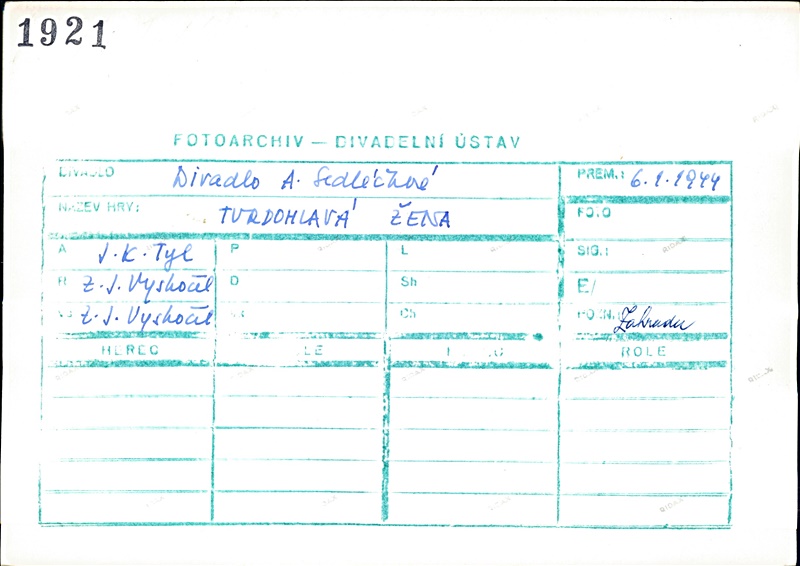 1921
FOTOARCHIV — DIVADELNÍ ÚSTAV
DIVADLO Divadlo A. Sedláčkové PREM.: 6.1.1944
NÁZEV HRY: TVRDOHLAVÁ ŽENA FOTO
A J.K. Tyl P L SIG.:
R Z.J. Vyskočil O Sh E/
Z.J. Vyskočil Ch POZN. Zahradu
HEREC ROLE